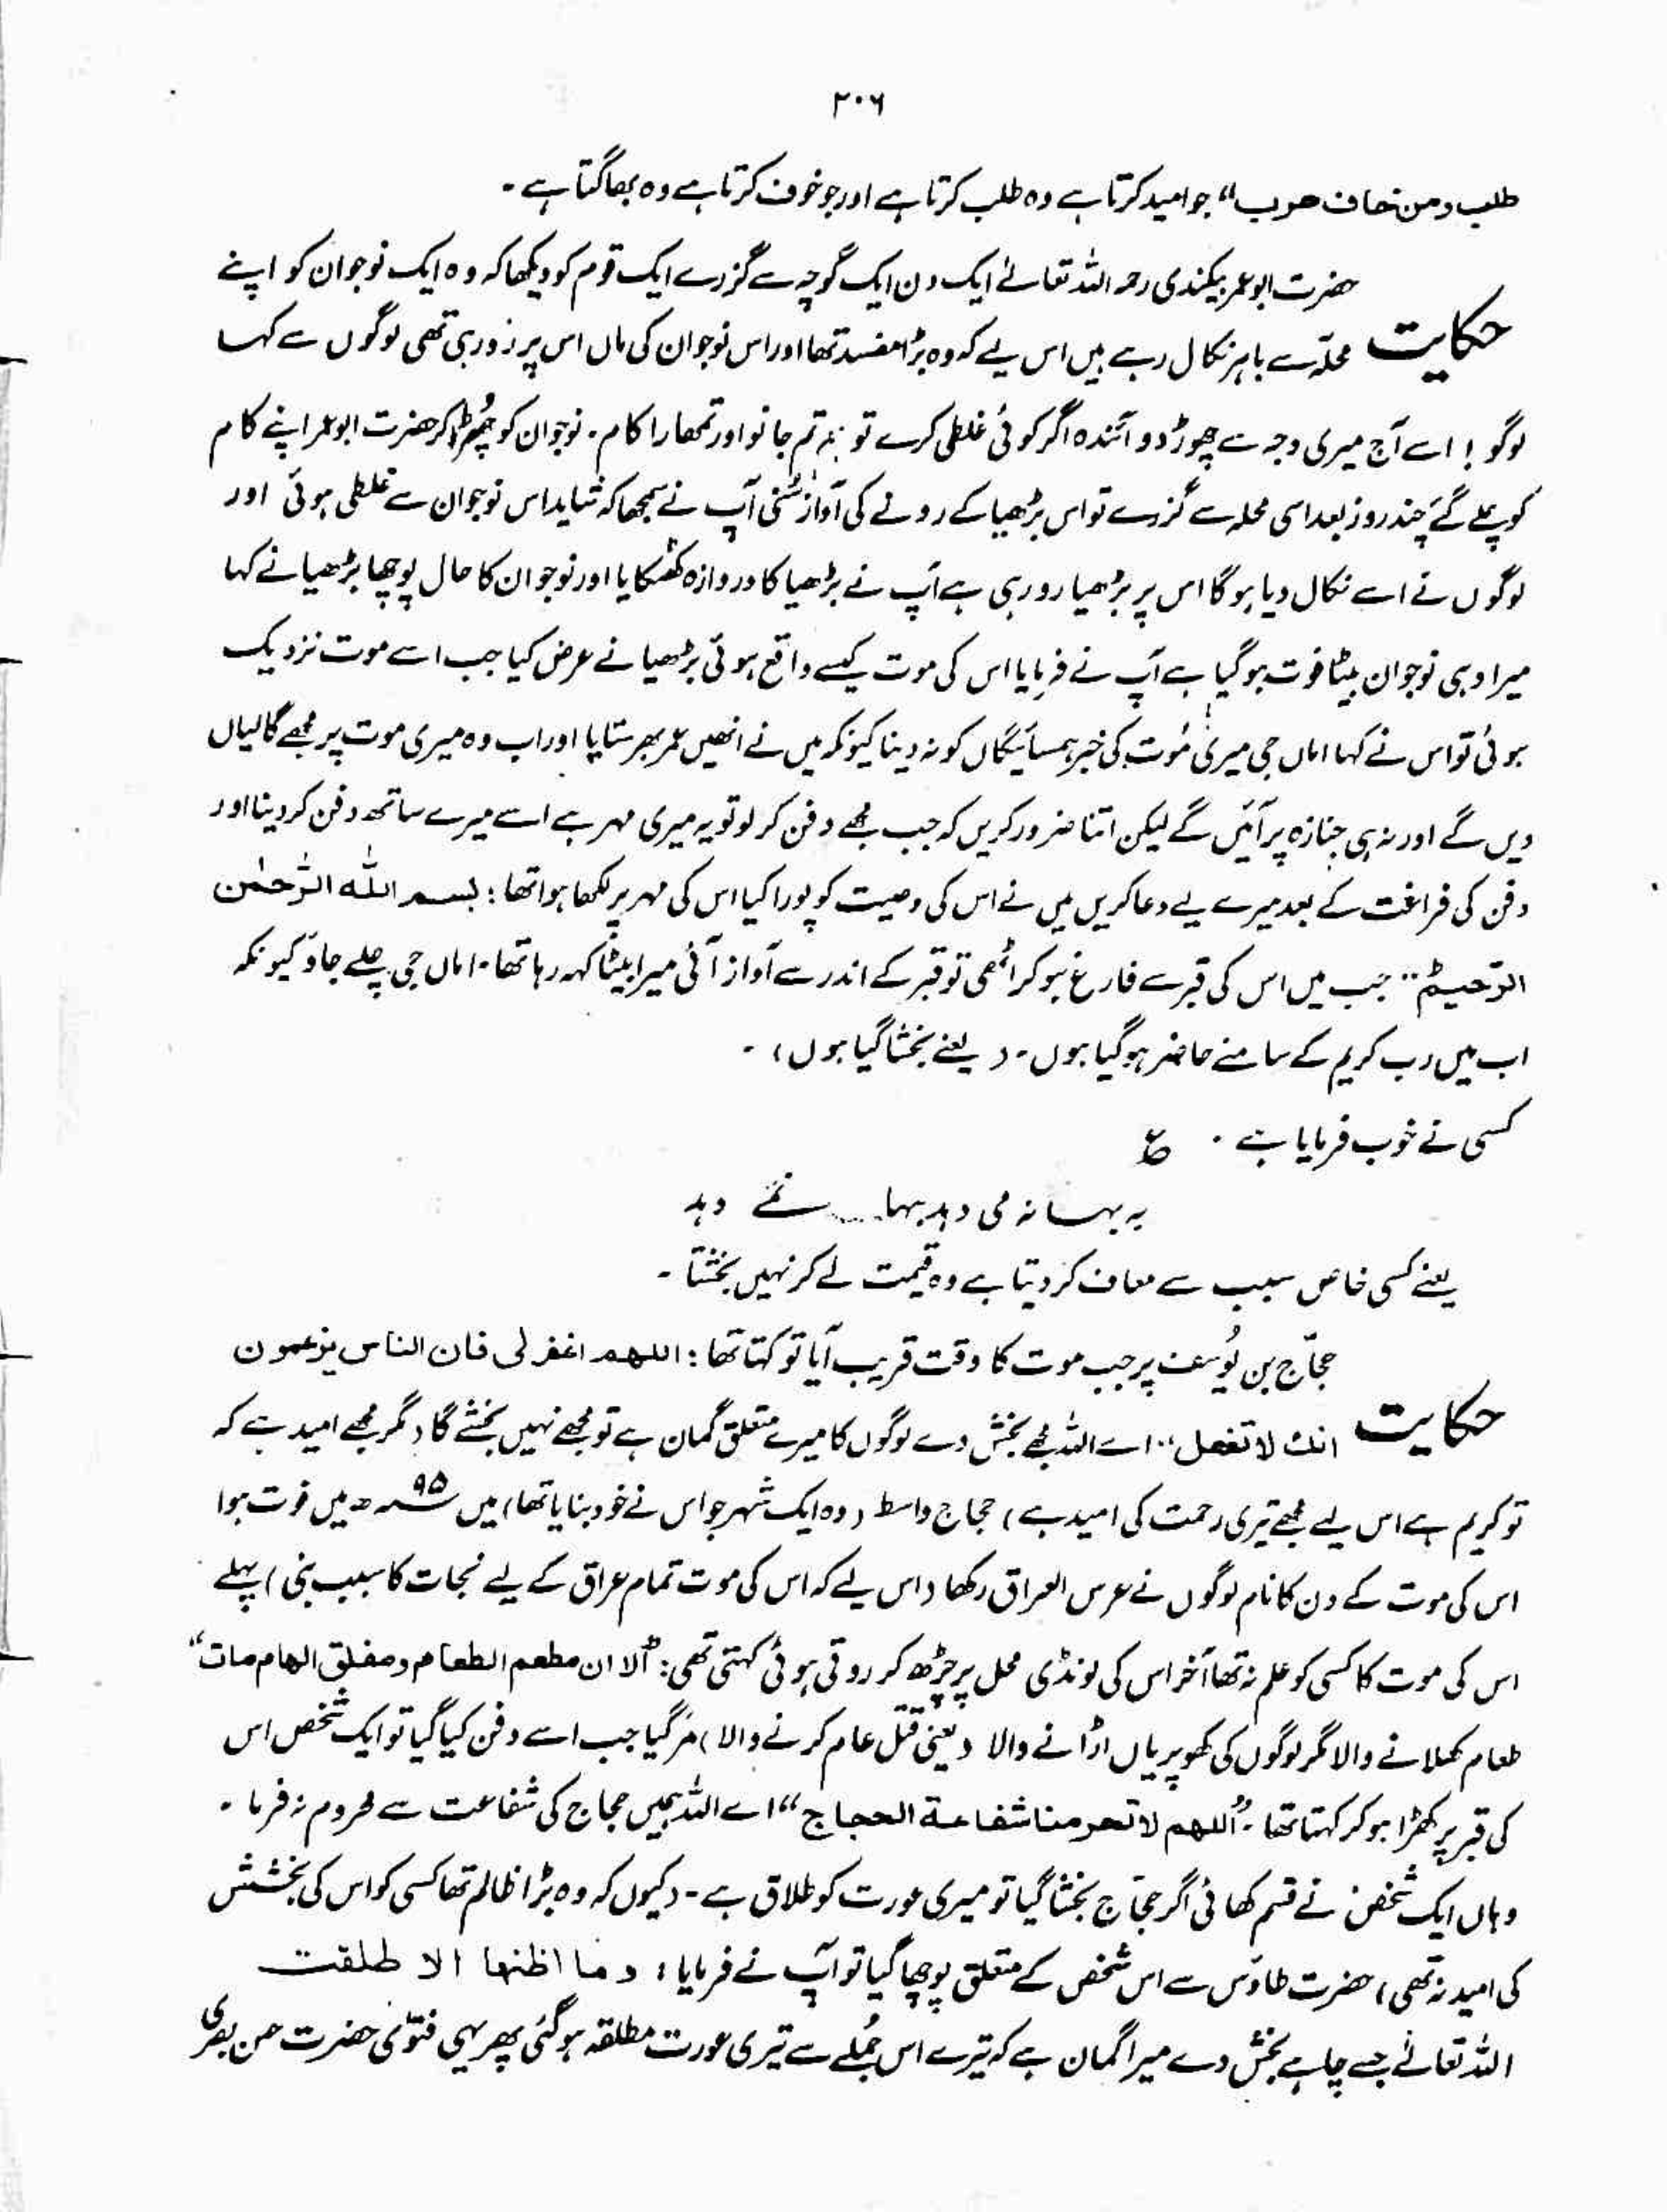 ۲۰۶
طلب ومن خاف هرب" جو امید کرتا ہے وہ طلب کرتا ہے اور جو خوف کرتا ہے وہ بھاگتا ہے ۔
حضرت ابو عمر بیکندی رحمہ اللہ تعالےٰ ایک دن ایک گوچہ سے گزرے ایک قوم کو دیکھا کہ وہ ایک نوجوان کو اپنے
حکایت محلّہ سے باہر نکال رہے ہیں اس لیے کہ وہ بڑا مفسد تھا اور اس نوجوان کی ماں اس پر زور رہی تھی لوگوں سے کہا
لوگو ! اسے آج میری وجہ سے چھوڑ دو آئندہ اگر کوئی غلطی کرے تو تم جانو اور تمھارا کام ۔ نوجوان کو چُھڑا کر حضرت ابو عمر اپنے کام
کو چلے گئے چند روز بعد اسی محلہ سے گزرے تو اس بڑھیا کے رونے کی آواز سُنی آپ نے سمجھا کہ شاید اس نوجوان سے غلطی ہوئی اور
لوگوں نے اسے نکال دیا ہوگا اس پر بڑھیا رو رہی ہے آپ نے بڑھیا کا دروازہ کھٹکایا اور نوجوان کا حال پوچھا بڑھیا نے کہا
میرا وہی نوجوان بیٹا فوت ہوگیا ہے آپ نے فرمایا اس کی موت کیسے واقع ہوئی بڑھیا نے عرض کیا جب اسے موت نزدیک
ہوئی تو اس نے کہا اماں جی میری مُوت کی خبر ہمسائیگاں کو نہ دینا کیونکہ میں نے انھیں عمر بھر ستایا اور اب وہ میری موت پر مجھے گالیاں
دیں گے اور نہ ہی جنازہ پر آئیں گے لیکن اتنا ضرور کریں کہ جب مجھے دفن کرلو تو یہ میری مہر ہے اسے میرے ساتھ دفن کردینا اور
دفن کی فراغت کے بعد میرے لیے دعا کریں میں نے اس کی وصیت کو پورا کیا اس کی مہر پر لکھا ہوا تھا : بسم اللہ الرّحمٰن
الرّحیم" جب میں اس کی قبر سے فارغ ہوکر اٹھی تو قبر کے اندر سے آواز آئی میرا بیٹا کہہ رہا تھا ۔ اماں جی چلے جاؤ کیونکہ
اب میں رب کریم کے سامنے حاضر ہوگیا ہوں ۔ ( یعنے بخشا گیا ہوں ) ۔
کسی نے خوب فرمایا ہے ۔ ع
بہ بہانہ می دہد بہا نمے دہد
یعنے کسی خاص سبب سے معاف کردیتا ہے وہ قیمت لے کر نہیں بخشتا ۔
حجّاج بن یُوسف پر جب موت کا وقت قریب آیا تو کہتا تھا : اللهم اغفر لی فان الناس یزعمون
حکایت انك لا تفعل " اے اللہ مجھے بخش دے لوگوں کا میرے متعلق گمان ہے تو مجھے نہیں بخشے گا ( مگر مجھے امید ہے کہ
تو کریم ہے اس لیے مجھے تیری رحمت کی امید ہے ) حجاج واسط ( وہ ایک شہر جو اس نے خود بنایا تھا ) میں ۹۵ھ میں فوت ہوا
اس کی موت کے دن کا نام لوگوں نے عرس العراق رکھا ( اس لیے کہ اس کی موت تمام عراق کے لیے نجات کا سبب بنی ) پہلے
اس کی موت کا کسی کو علم نہ تھا آخر اس کی لونڈی محل پر چڑھ کر روتی ہوئی کہتی تھی : "الا ان مطعم الطعام و مفلق الهام مات"
طعام کھلانے والا مگر لوگوں کی کھوپریاں اڑانے والا ( یعنی قتل عام کرنے والا ) مرگیا جب اسے دفن کیا گیا تو ایک شخص اس
کی قبر پر کھڑا ہوکر کہتا تھا ۔ "اللهم لا تحرمنا شفاعة الحجاج" اے اللہ ہمیں حجاج کی شفاعت سے محروم نہ فرما ۔
وہاں ایک شخص نے قسم کھائی اگر حجّاج بخشا گیا تو میری عورت کو طلاق ہے ۔ ( کیوں کہ وہ بڑا ظالم تھا کسی کو اس کی بخشش
کی امید نہ تھی ) حضرت طاؤس سے اس شخص کے متعلق پوچھا گیا تو آپ نے فرمایا : وما اظنها الا طلقت
اللہ تعالےٰ جسے چاہے بخش دے میرا گمان ہے کہ تیرے اس جُملے سے تیری عورت مطلقہ ہوگئی پھر یہی فتوٰی حضرت حسن بصری